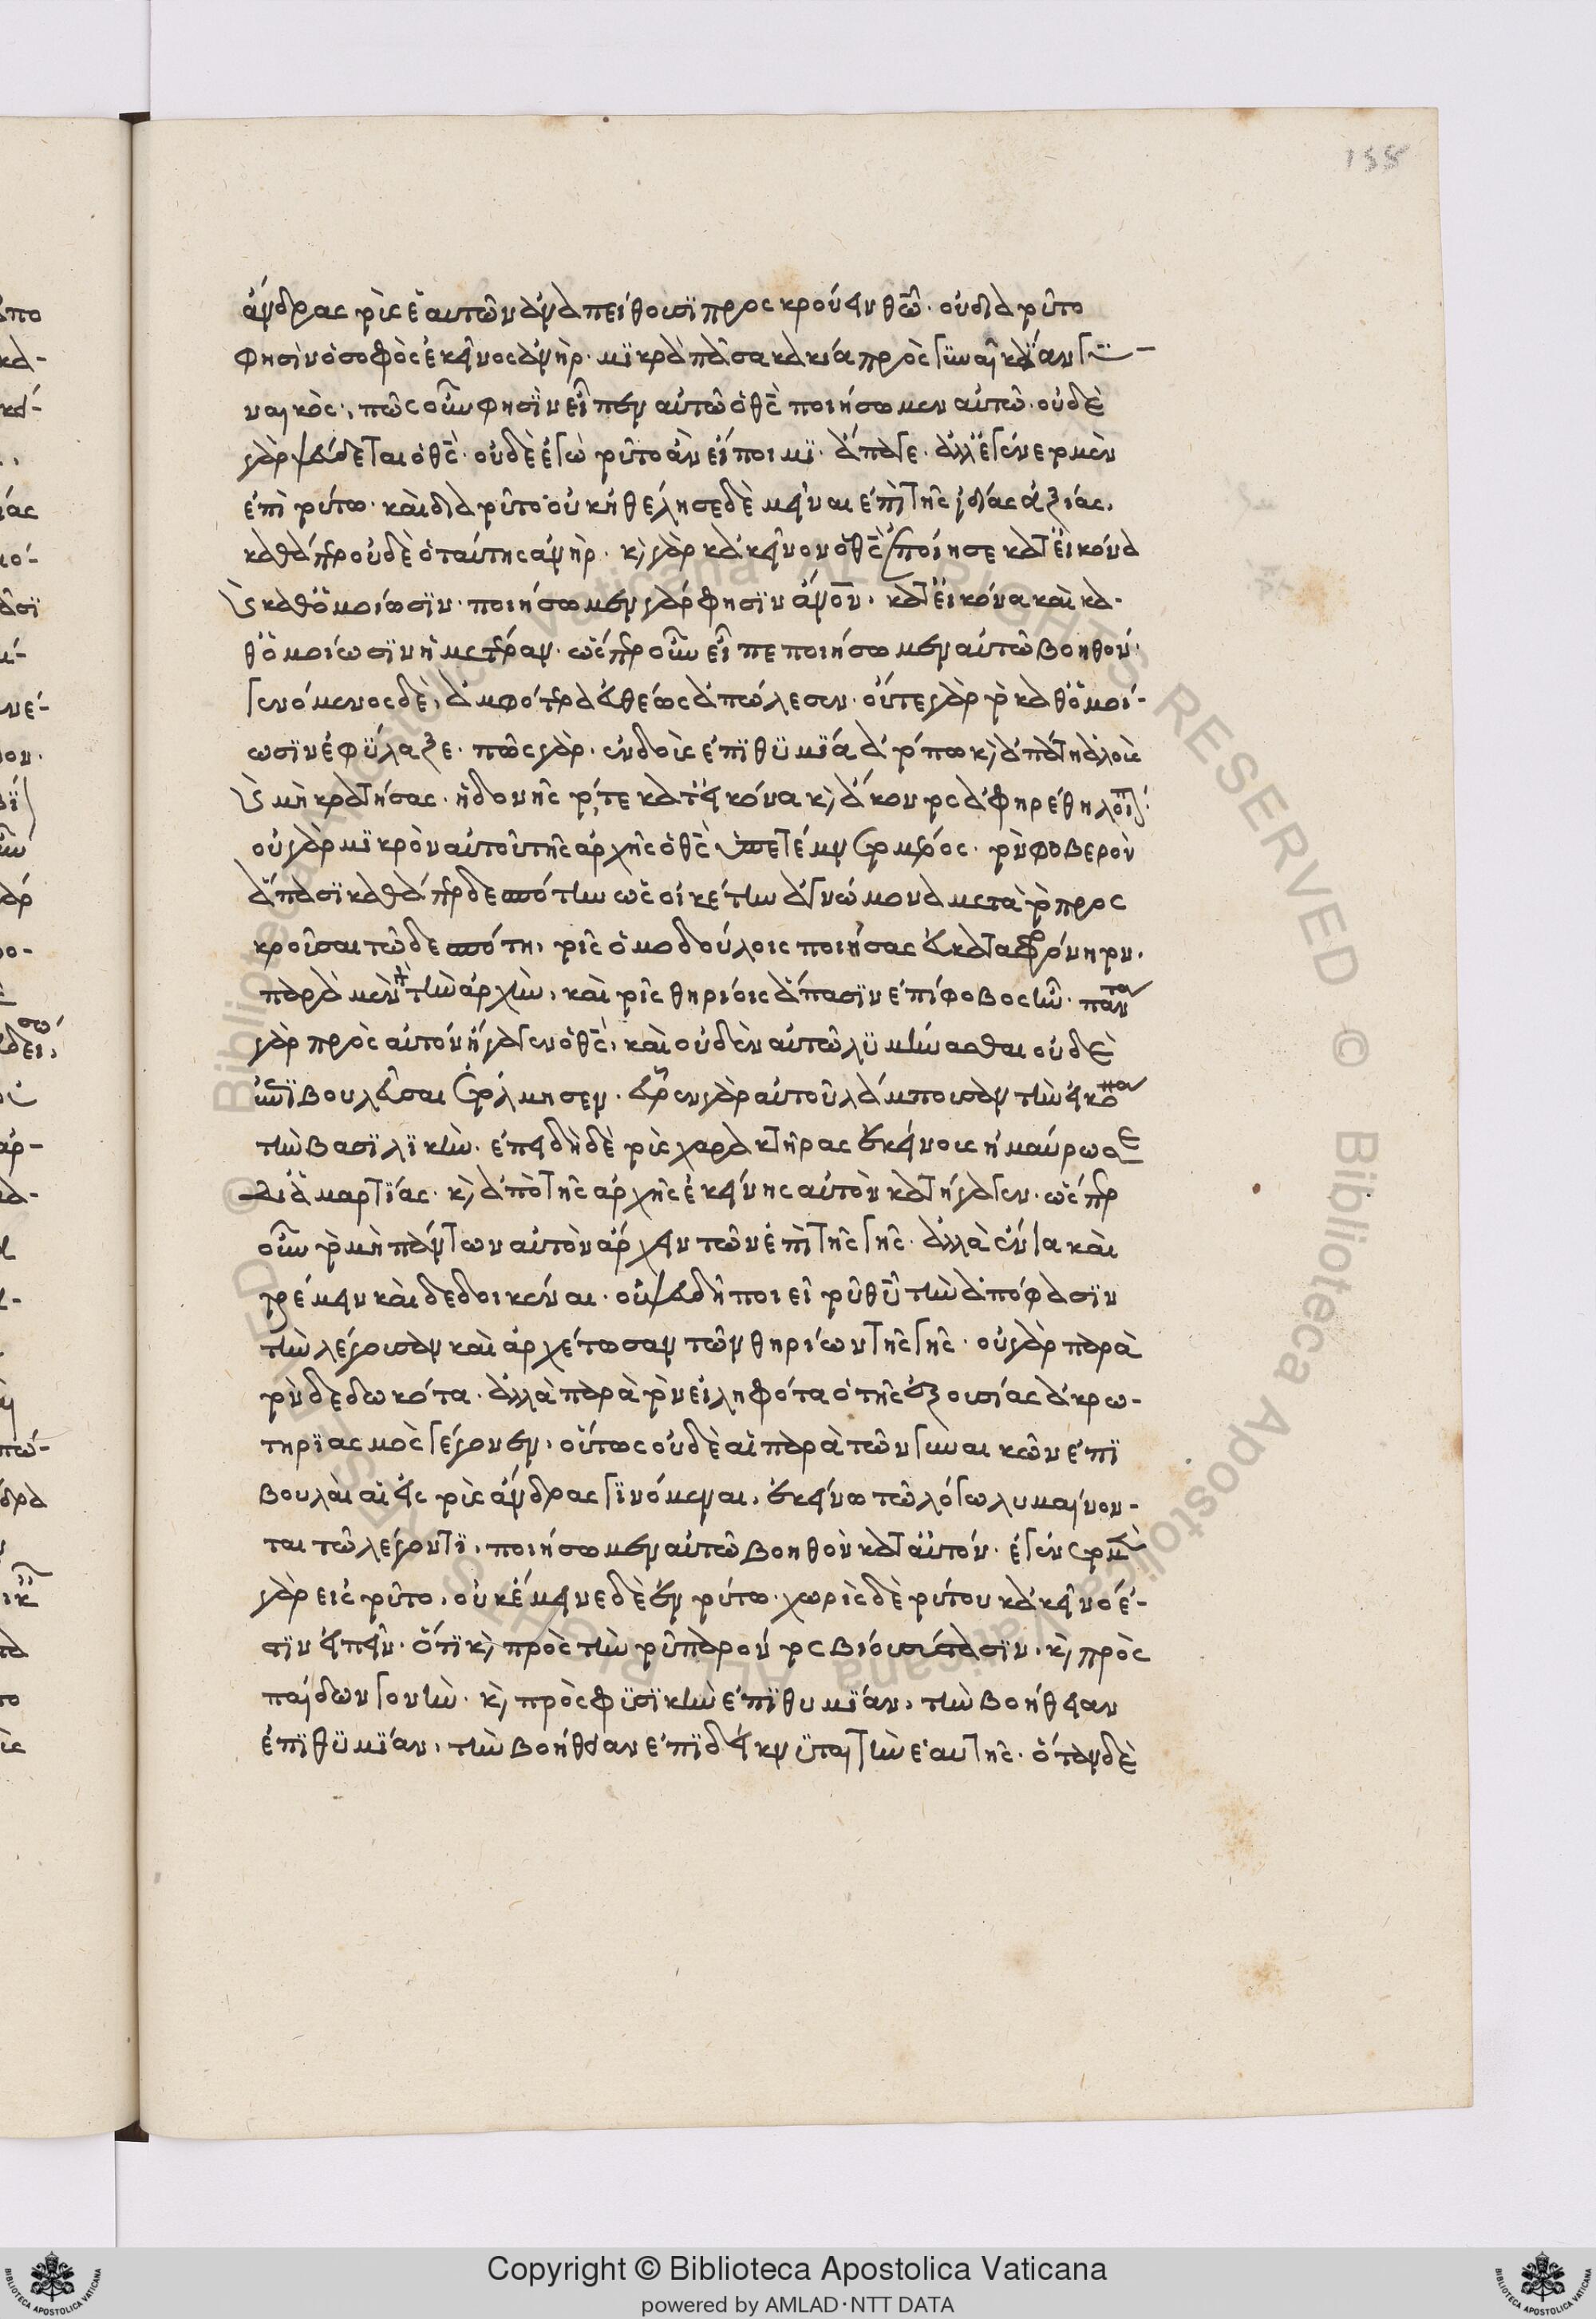 ἄνδρας τοὺς ἑαυτῶν ἀναπείθουσϊ προσκρούειν θῶ. οὐ διὰ τοῦτο
φησὶν ὁ σοφὸς ἐκεῖνος ἀνὴρ. μϊκρὰ πᾶσα κακία πρὸς γϋναικακΐαν γϋ-
ναικὸς. πῶς οὖν φησῒν εἶπεν αὐτῶ ὁ θς ποιήσωμεν αὐτῶ. οὐδὲ
γὰρ ψεύδεται ὁ θς. οὐδὲ ἐγὼ τοῦτο ἂν εἴποιμϊ. ἄπαγε. ἀλλ' ἐγένετο μὲν
ἐπὶ τούτω. καὶ διὰ τοῦτο οὐκ ἠθέλησε δὲ μεῖναι ἐπὶ τῆς ἰδίας ἀξίας.
καθάπερ οὐδὲ ὁ ταύτης ἀνὴρ. κ̀ γὰρ κἀκεῖνον ὁ θς ἐποίησε κατ' εἰκόνα
κ̀ καθ' ὁμοίωσϊν. ποιήσωμεν γάρ φησϊν ἄνον. κατ' εἰκόνα καὶ κα-
θ' ὁμοίωσϊν ἡμετέραν. ὥσπερ οὖν εἶπε ποιήσωμεν αὐτῶ βοηθόν.
γενόμενος δὲ, ἀμφότερα εὐθέως ἀπώλεσεν. οὔτε γὰρ τὸ καθ' ὁμοί-
ωσϊν ἐφύλαξε. πῶς γὰρ. ἐνδοὺς ἐπϊθϋμϊά ἀτόπω κ̀ ἀπάτη ἁλοὺς
κ̀ μὴ κρατήσας. ἡδονῆς τό,τε κατ' εἰκόνα κ̀ ἄκοντος ἀφηρέθη λοιπ.
οὐ γὰρ μϊκρὸν αὐτοῦ τῆς ἀρχῆς ὁ θς ὑπετέμνετο μέρος. τὸν φοβερὸν
ἅπασϊ καθάπερ δεσπότην ὡς οἰκέτην ἀγνώμονα μετὰ τὸ προσ
κροῦσαι τῶ δεσπότη, τοῖς ὁμοδούλοις ποιήσας εὐκαταφρόνητον.
παρὰ μὲν + τὴν ἀρχὴν, καὶ τοῖς θηρίοις ἅπασϊν ἐπίφοβος ἦν. πάντα
γὰρ πρὸς αὐτόν ἤγαγεν ὁ θς, καὶ οὐδὲν αὐτῶ λϋμήνασθαι οὐδὲ
ἐπϊβουλεῦσαι ἐτόλμησεν. ἑώρων γὰρ αὐτοῦ λάμπουσαν τὴν εἰκόνα
τὴν βασϊλϊκὴν. ἐπειδὴ δὲ τοὺς χαρακτῆρας ἐκείνους ἠμαύρωσε
δι' ἁμαρτΐας. κ̀ ἀπὸ τῆς ἀρχῆς ἐκείνης αὐτὸν κατήγαγεν. ὥσπερ
οὖν τὸ μὴ πάντων αὐτὸν ἄρχειν τῶν ἐπὶ τῆς γῆς. ἀλλὰ ἔνια καὶ
τρέμειν καὶ δεδοικέναι. οὐ ψευδῆ ποιεῖ τοῦ θῦ τὴν ἀπόφασϊν
τὴν λέγουσαν καὶ ἀρχέτωσαν τῶν θηρίων τῆς γῆς. οὐ γὰρ παρὰ
τὸν δεδωκότα. ἀλλὰ παρὰ τὸν εἰληφότα ὁ τῆς ἐξουσίας ἀκρω-
τηρϊασμὸς γέγονεν, οὕτως οὐδὲ αἱ παρὰ τῶν γυναικῶν ἐπϊ
βουλαὶ αἱ εἰς τοὺς ἄνδρας γϊνόμεναι, ἐκείνω τῶ λόγω λυμαίνον-
ται τῶ λέγοντϊ, ποιήσωμεν αὐτῶ βοηθὸν κατ' αὐτόν. ἐγένετο μὲν
γὰρ εἰς τοῦτο, οὐκ ἔμεινε δὲ ἐν τούτω. χωρὶς δὲ τούτου κἀκεῖνό ἐ-
στϊν εἰπεῖν. ὅτϊ κ̀ πρὸς τὴν τοῦ παρόντος βίου σύστασϊν. κ̀ πρὸς
παίδων γονὴν. κ̀ πρὸς φϋσϊκὴν ἐπϊθυμϊάν, τὴν βοήθειαν
ἐπϊθϋμϊάν, τὴν βοήθειαν ἐπϊδείκνϋται τὴν ἑαυτῆς. ὅταν δὲ